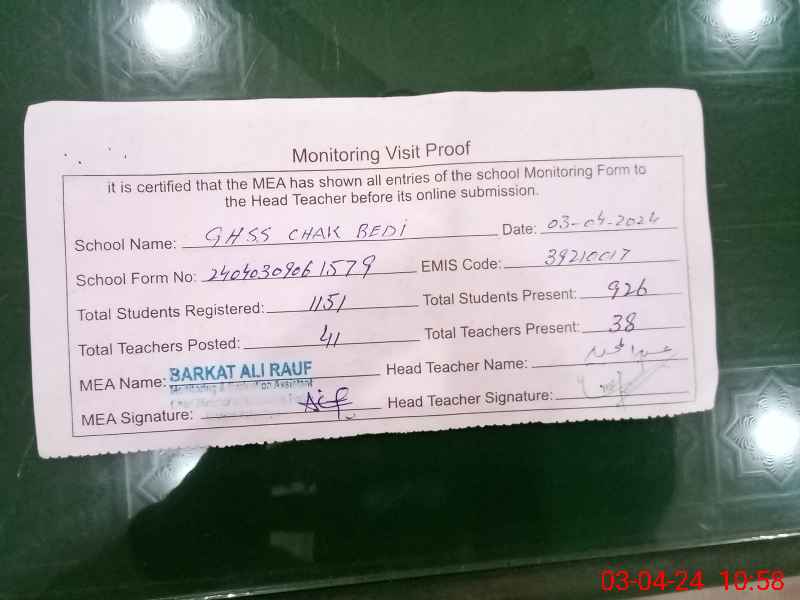 Monitoring Visit Proof
it is certified that the MEA has shown all entries of the school Monitoring Form to
the Head Teacher before its online submission.
School Name: GHSS CHAK BEDI Date: 03-04-2024
School Form No: 2404030906 1579 EMIS Code: 39210017
Total Students Registered: 1151 Total Students Present: 926
Total Teachers Posted: 41 Total Teachers Present: 38
MEA Name: BARKAT ALI RAUF Head Teacher Name:
MEA Signature: Head Teacher Signature:
03-04-24 10:58